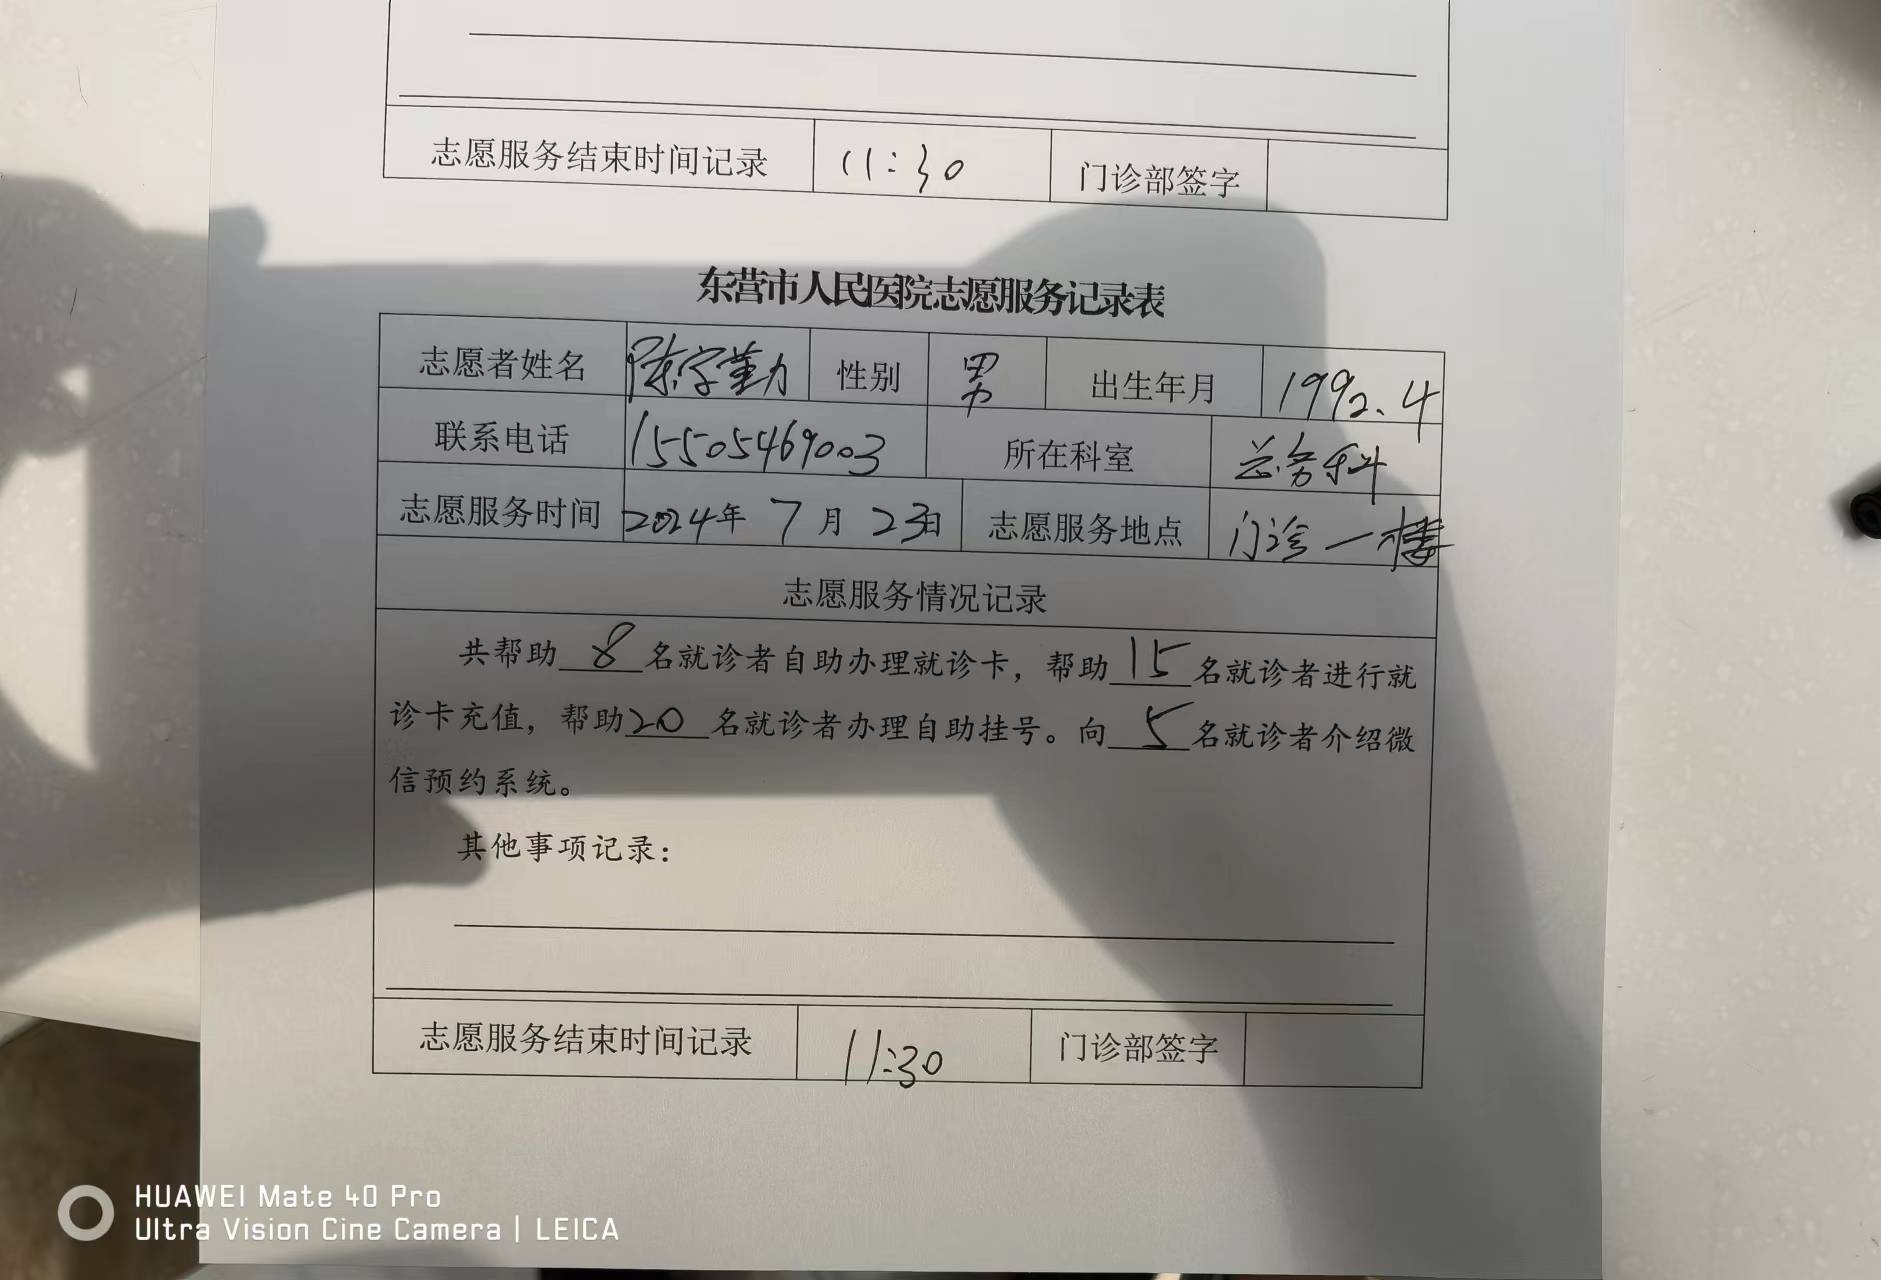 志愿服务结束时间记录 11:30 门诊部签字
东营市人民医院志愿服务记录表
志愿者姓名 陈字勤 性别 男 出生年月 1992.4
联系电话 15505469003 所在科室 总务科
志愿服务时间 2024年 7月 23日 志愿服务地点 门诊一楼
志愿服务情况记录
共帮助8名就诊者自助办理就诊卡，帮助15名就诊者进行就
诊卡充值，帮助20名就诊者办理自助挂号。向5名就诊者介绍微
信预约系统。
其他事项记录：
志愿服务结束时间记录 11:30 门诊部签字
HUAWEI Mate 40 Pro
Ultra Vision Cine Camera | LEICA